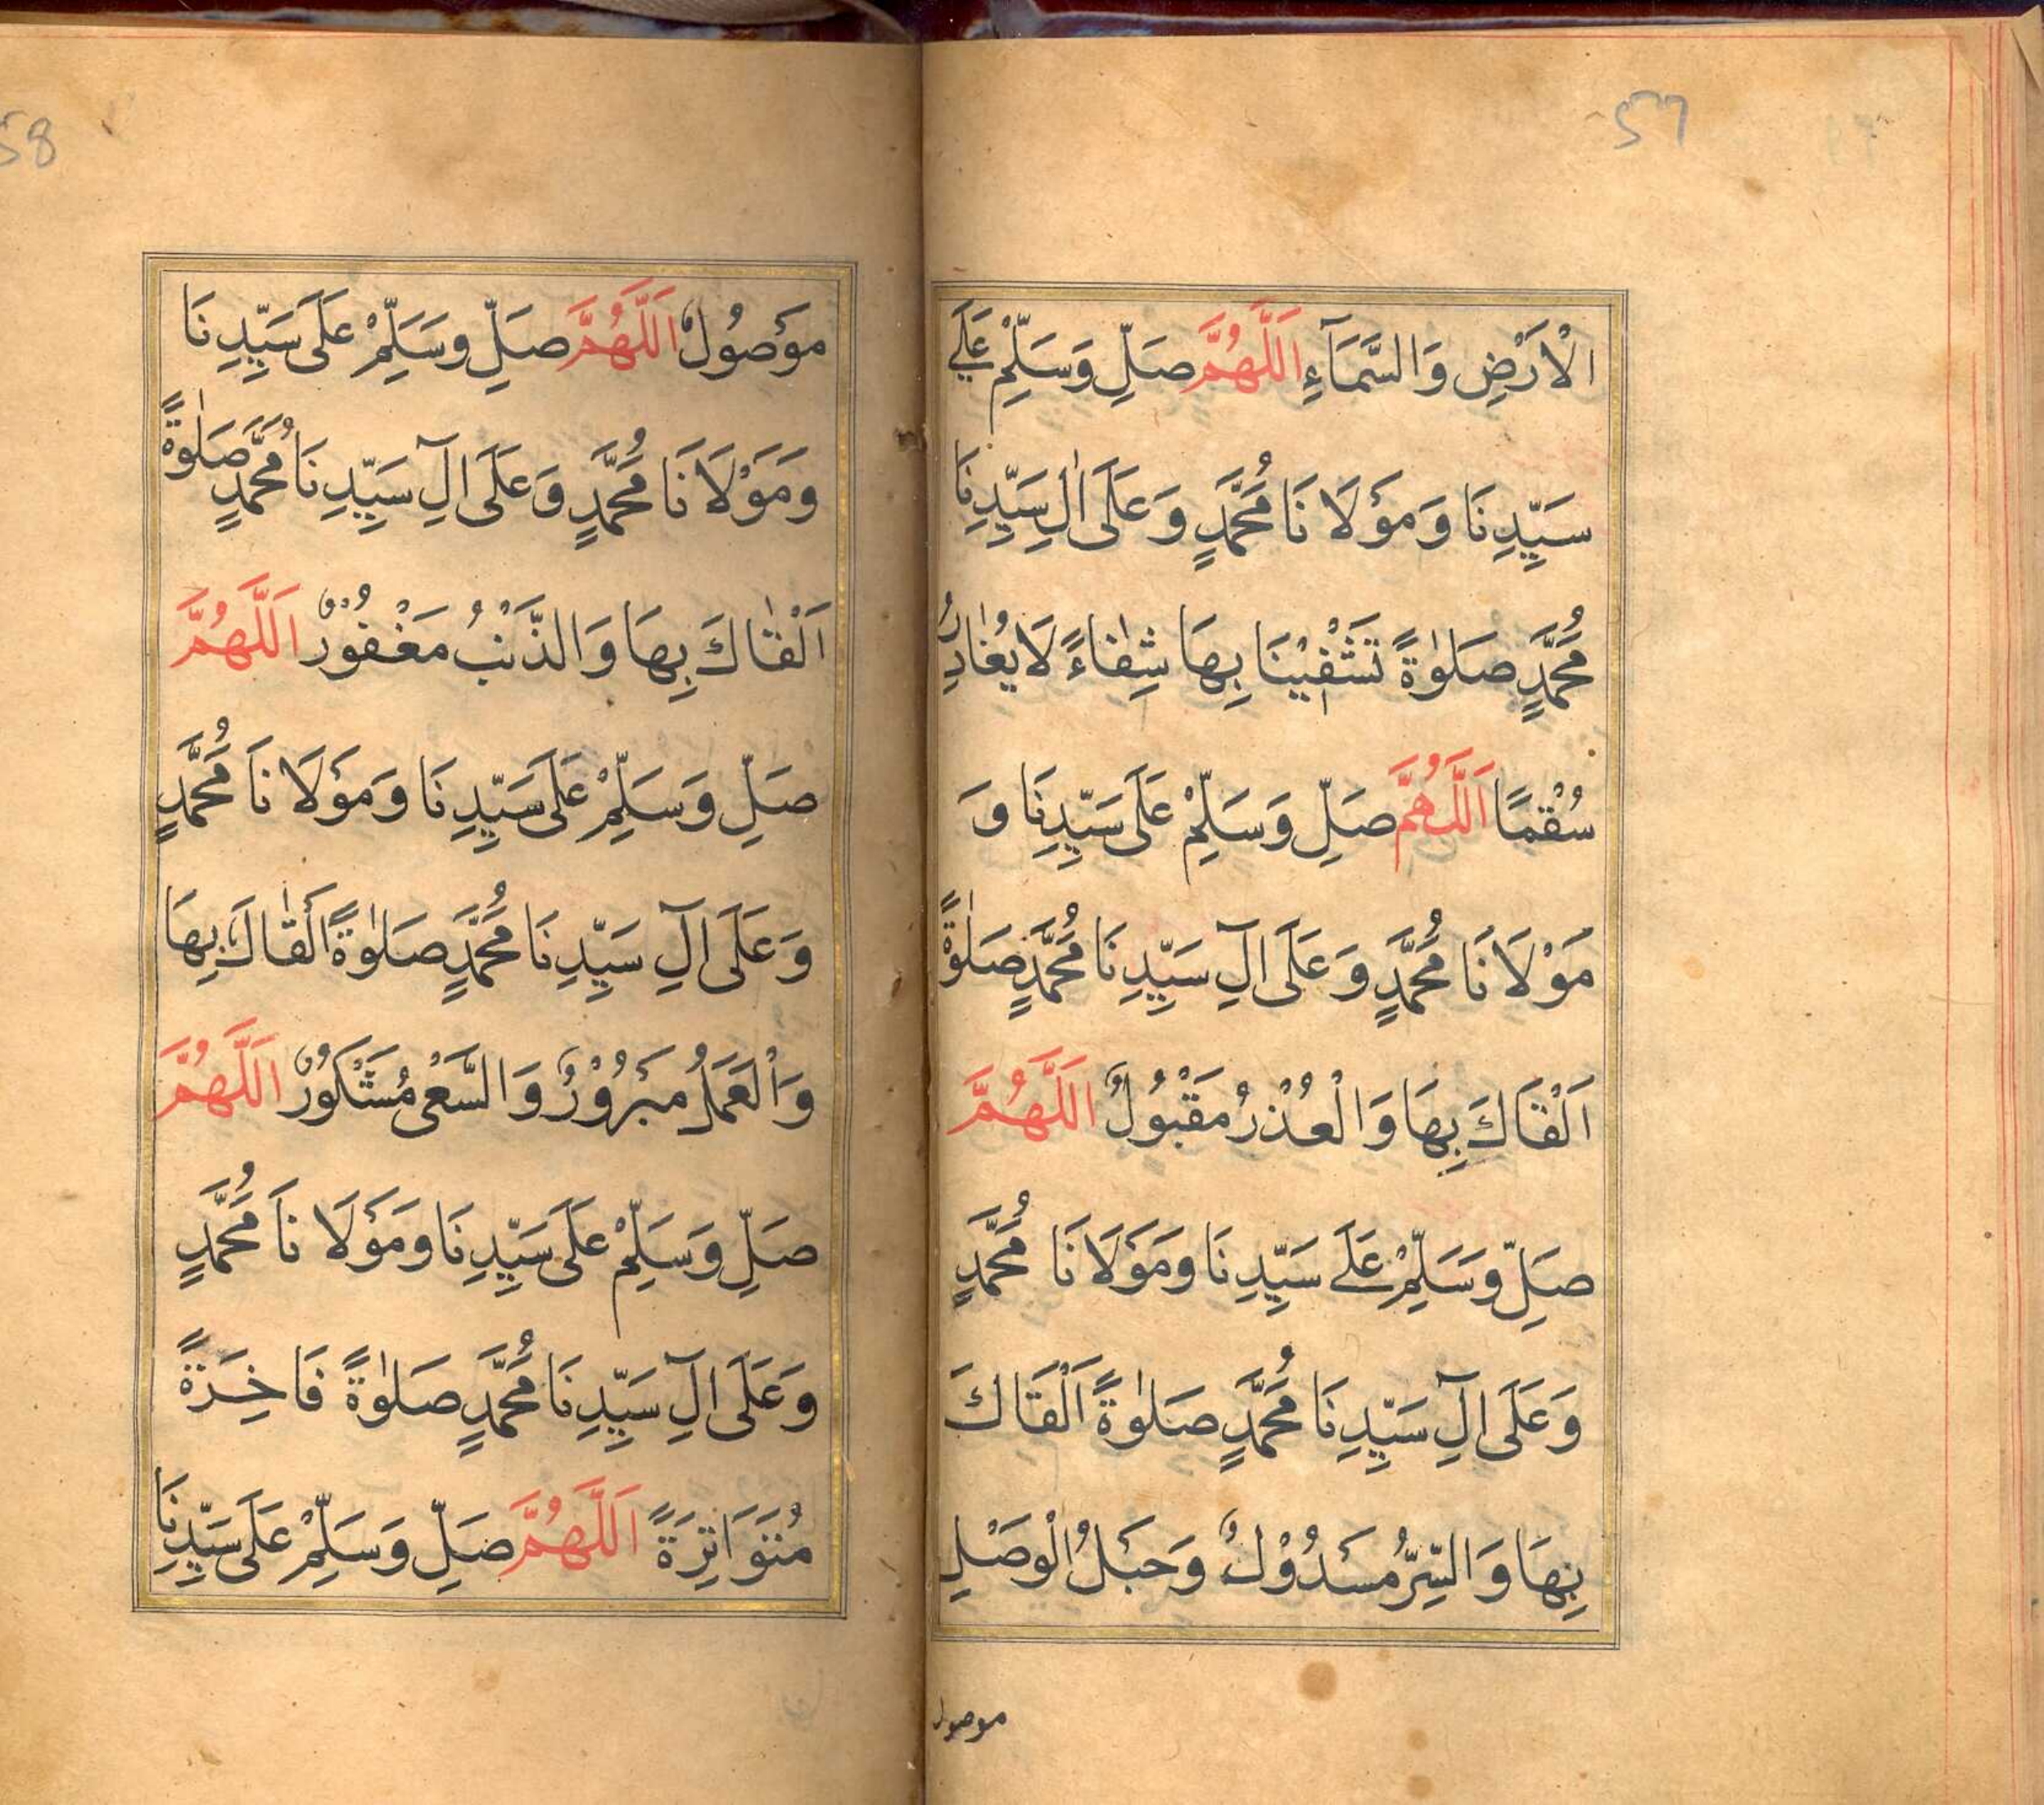 57
الْاَرْضِ وَالسَّمَآءِ اَللّٰهُمَّ صَلِّ وَسَلِّمْ عَلٰے
سَيِّدِنَا وَمَوْلَانَا مُحَمَّدٍ وَعَلَى اٰلِ سَيِّدِنَا
مُحَمَّدٍ صَلٰوةً تَشْفِيْنَا بِهَا شِفَاءً لَا يُغَادِرُ
سُقْمًا اَللّٰهُمَّ صَلِّ وَسَلِّمْ عَلَى سَيِّدِنَا وَ
مَوْلَانَا مُحَمَّدٍ وَعَلَى اٰلِ سَيِّدِنَا مُحَمَّدٍ صَلٰوةً
اَلْقَاكَ بِهَا وَالْعُذْرُ مَقْبُولٌ اَللّٰهُمَّ
صَلِّ وَسَلِّمْ عَلٰے سَيِّدِنَا وَمَوْلَانَا مُحَمَّدٍ
وَعَلَى اٰلِ سَيِّدِنَا مُحَمَّدٍ صَلٰوةً اَلْقَاكَ
بِهَا وَالسِّرُّ مَسْدُوْلٌ وَحَبْلُ الْوَصْلِ
موصول
58
مَوْصُولٌ اَللّٰهُمَّ صَلِّ وَسَلِّمْ عَلَى سَيِّدِنَا
وَمَوْلَانَا مُحَمَّدٍ وَعَلَى اٰلِ سَيِّدِنَا مُحَمَّدٍ صَلٰوةً
اَلْقَاكَ بِهَا وَالذَّنْبُ مَغْفُوْرٌ اَللّٰهُمَّ
صَلِّ وَسَلِّمْ عَلَى سَيِّدِنَا وَمَوْلَانَا مُحَمَّدٍ
وَعَلَى اٰلِ سَيِّدِنَا مُحَمَّدٍ صَلٰوةً اَلْقَاكَ بِهَا
وَالْعَمَلُ مَبْرُوْرٌ وَالسَّعْى مَشْكُوْرٌ اَللّٰهُمَّ
صَلِّ وَسَلِّمْ عَلَى سَيِّدِنَا وَمَوْلَانَا مُحَمَّدٍ
وَعَلَى اٰلِ سَيِّدِنَا مُحَمَّدٍ صَلٰوةً فَاخِرَةً
مُتَوَاتِرَةً اَللّٰهُمَّ صَلِّ وَسَلِّمْ عَلَى سَيِّدِنَا